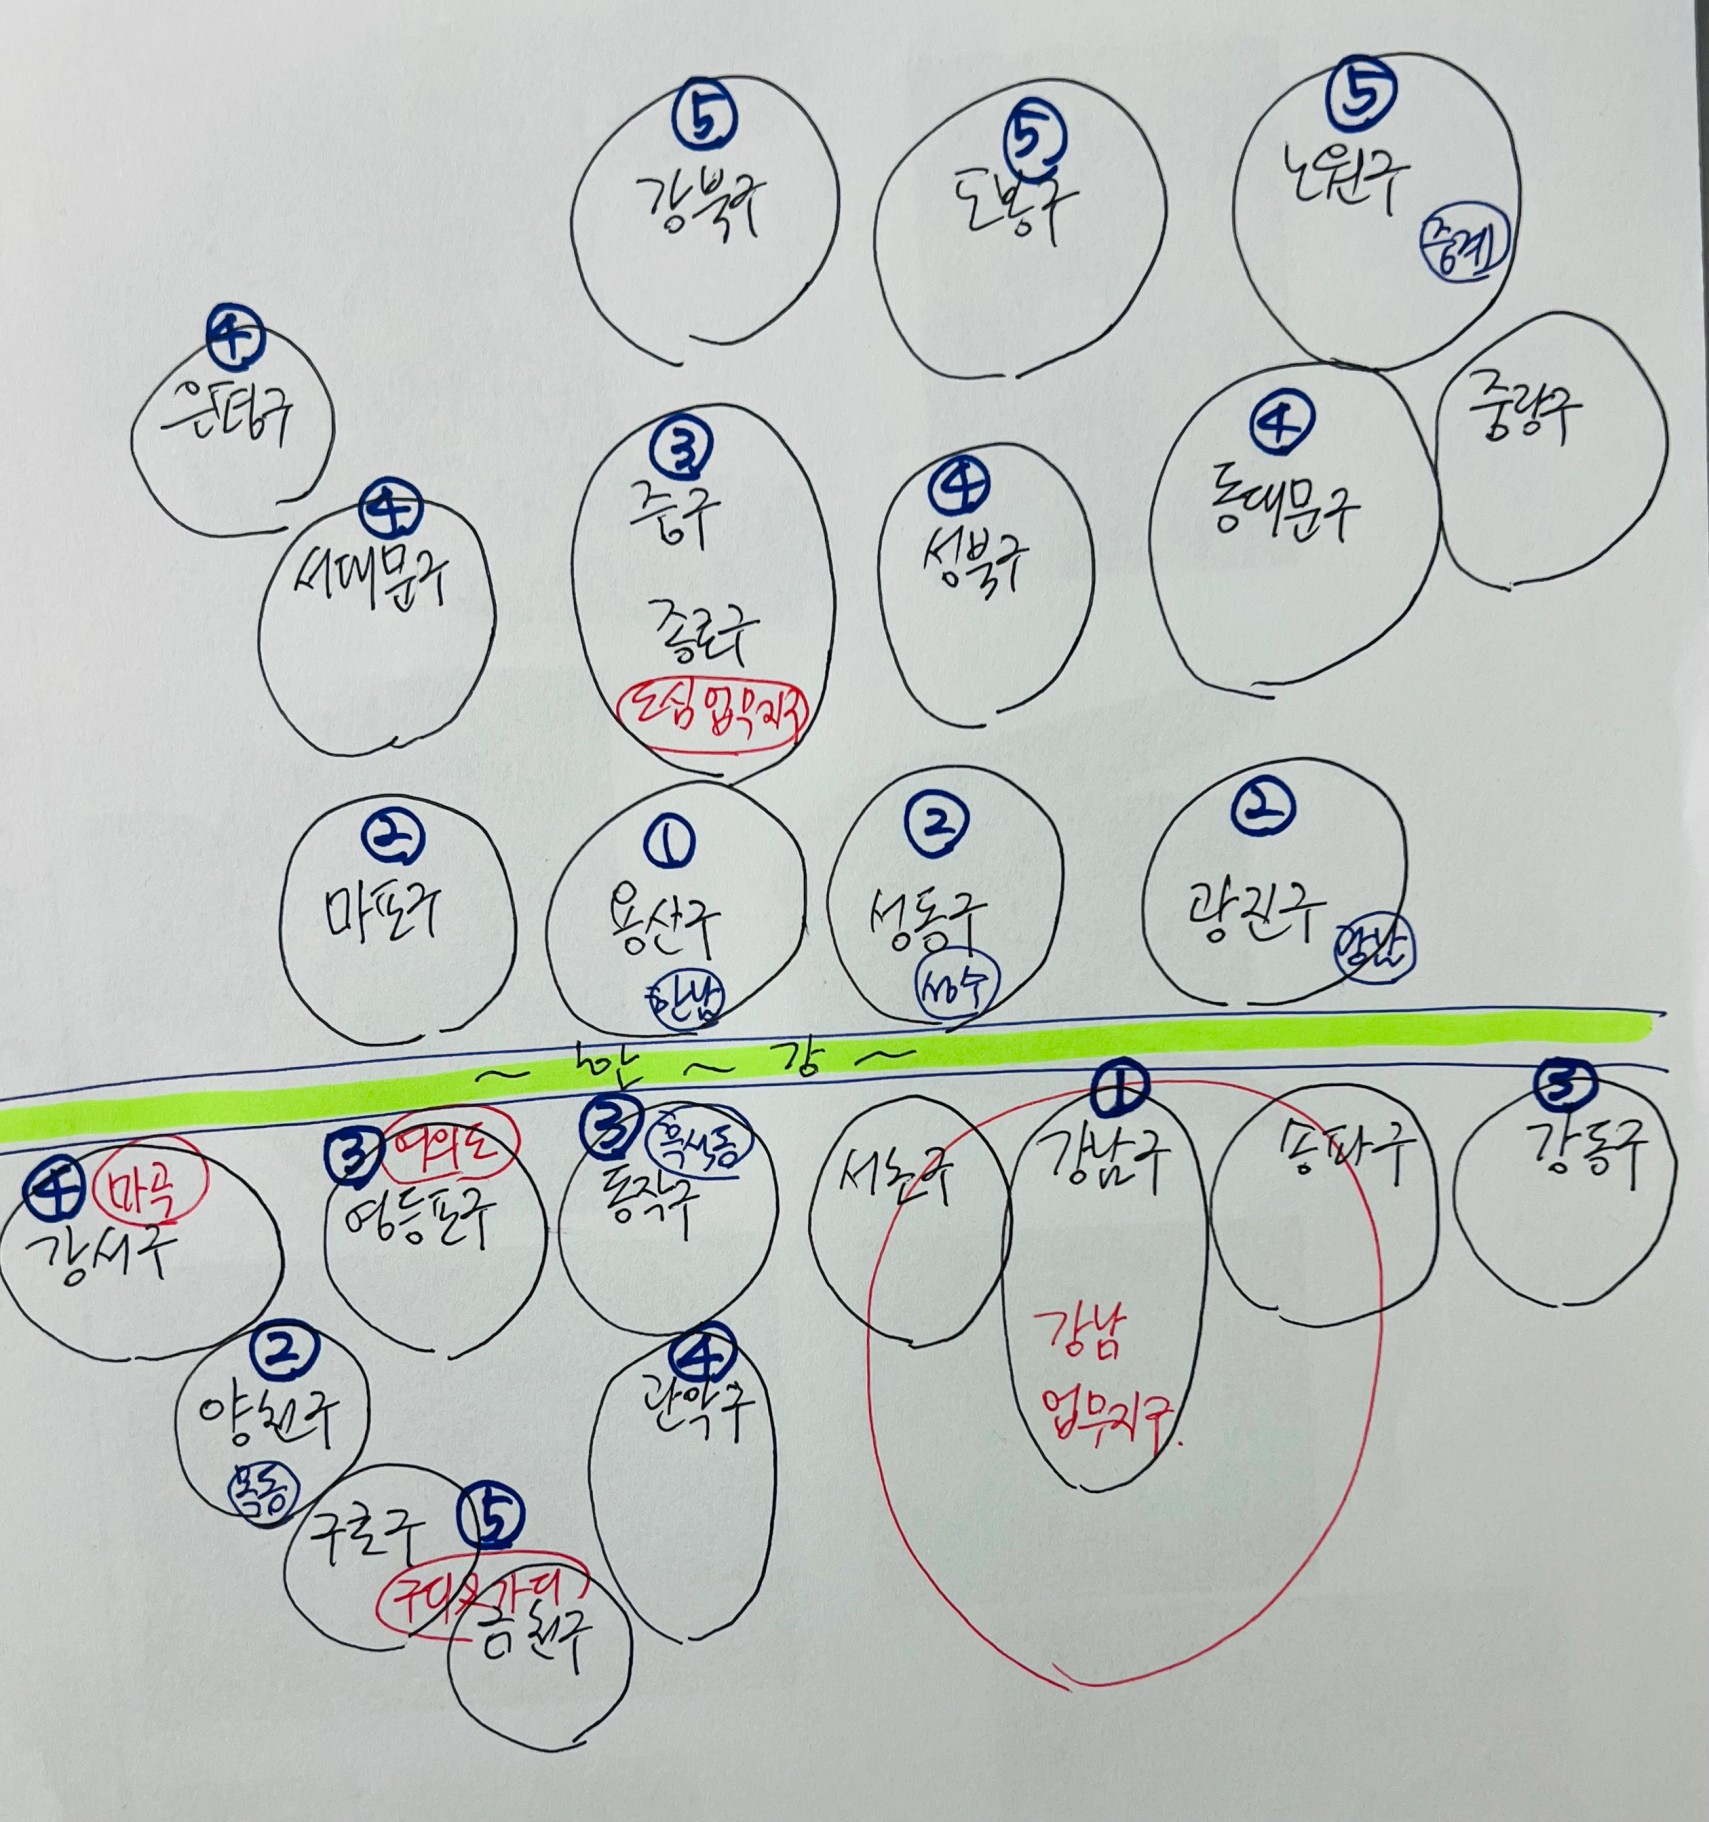 ⑤
강북구
⑤
도봉구
⑤
노원구
중계
④
은평구
④
서대문구
③
중구
종로구
도심업무지구
④
성북구
④
동대문구
중랑구
②
마포구
①
용산구
한남
②
성동구
성수
②
광진구
광남
~ 한 ~ 강 ~
④
마곡
강서구
③
여의도
영등포구
③
흑석동
동작구
서초구
①
강남구
강남
업무지구.
송파구
③
강동구
②
양천구
목동
④
관악구
구로구
⑤
구디/가디
금천구